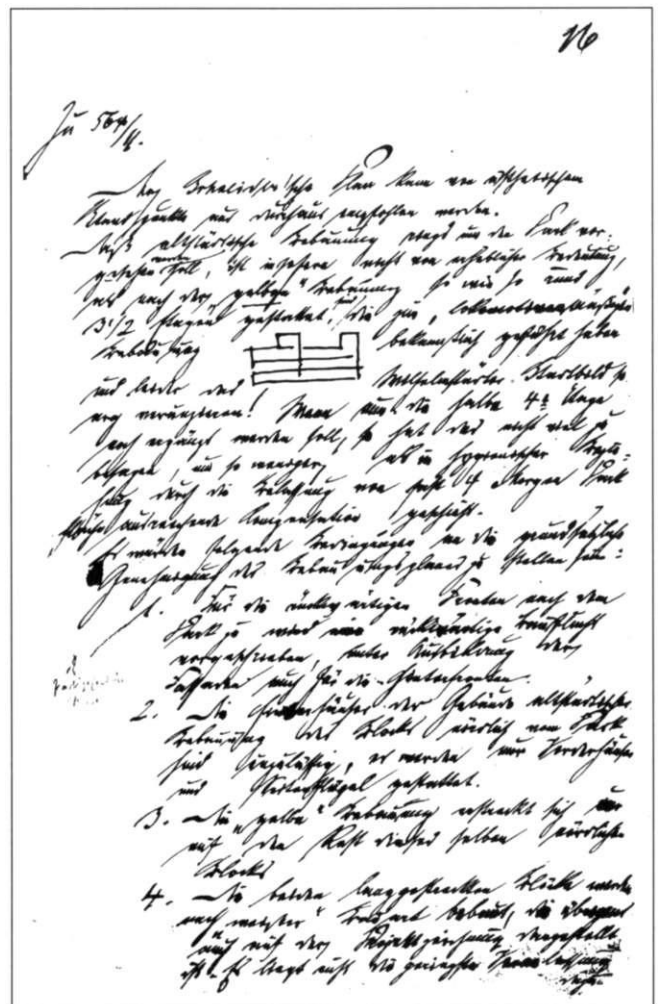 16
Zu 564/4.
Der Bräalicher'sche Plan kann vom ästhetischen
Standpunkte aus durchaus empfohlen werden.
Daß altstädtische Bebauung rings um den Park vor-
gesehen werden soll, ist insofern nicht von erheblicher Bedeutung,
als nach der „gelben“ Bebauung so wie so rund
3 1/2 Etagen gestattet sind, die zur „lokomotivmäßigen“
Bebauung bekanntlich geführt haben
und leider das Stadtbild so
arg verunzieren! Wenn nun die halbe 4te Etage
noch ergänzt werden soll, so hat das nicht viel zu
besagen, um so weniger, als in hygienischer Bezie-
hung durch die Belassung von fast 4 Morgen Park
fläche ausreichende Kompensation geschieht.
Es würden folgende Bedingungen an die grundsätzliche
Genehmigung des Bebauungsplanes zu stellen sein:
1. Für die rückwärtigen Fronten nach dem
Park zu wird eine rückwärtige Bauflucht
vorgeschrieben, unter Ausbildung der
Fassaden auch für die Hinterfronten.
2. Die Hinterhäuser der Gebäude altstädtischer
Bebauung des Blocks nördlich vom Park
sind unzulässig, es werden nur Vorderhäuser
und Seitenflügel gestattet.
3. Die „gelbe“ Bebauung erstreckt sich nur
auf den Rest dieses selben nördlichen
Blocks
4. Die beiden langgestreckten Blöcke werden
nach Bauart bebaut, die übrigens
auch auf der Projektzeichnung dargestellt
ist. Es liegt nicht die geringste Veranlassung